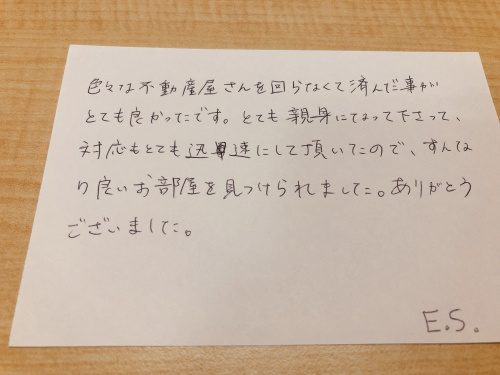 色々な不動産屋さんを回らなくて済んだ事が
とても良かったです。とても親身になって下さって、
対応もとても迅速にして頂いてたので、すんな
り良いお部屋を見つけられました。ありがとう
ございました。
E.S.